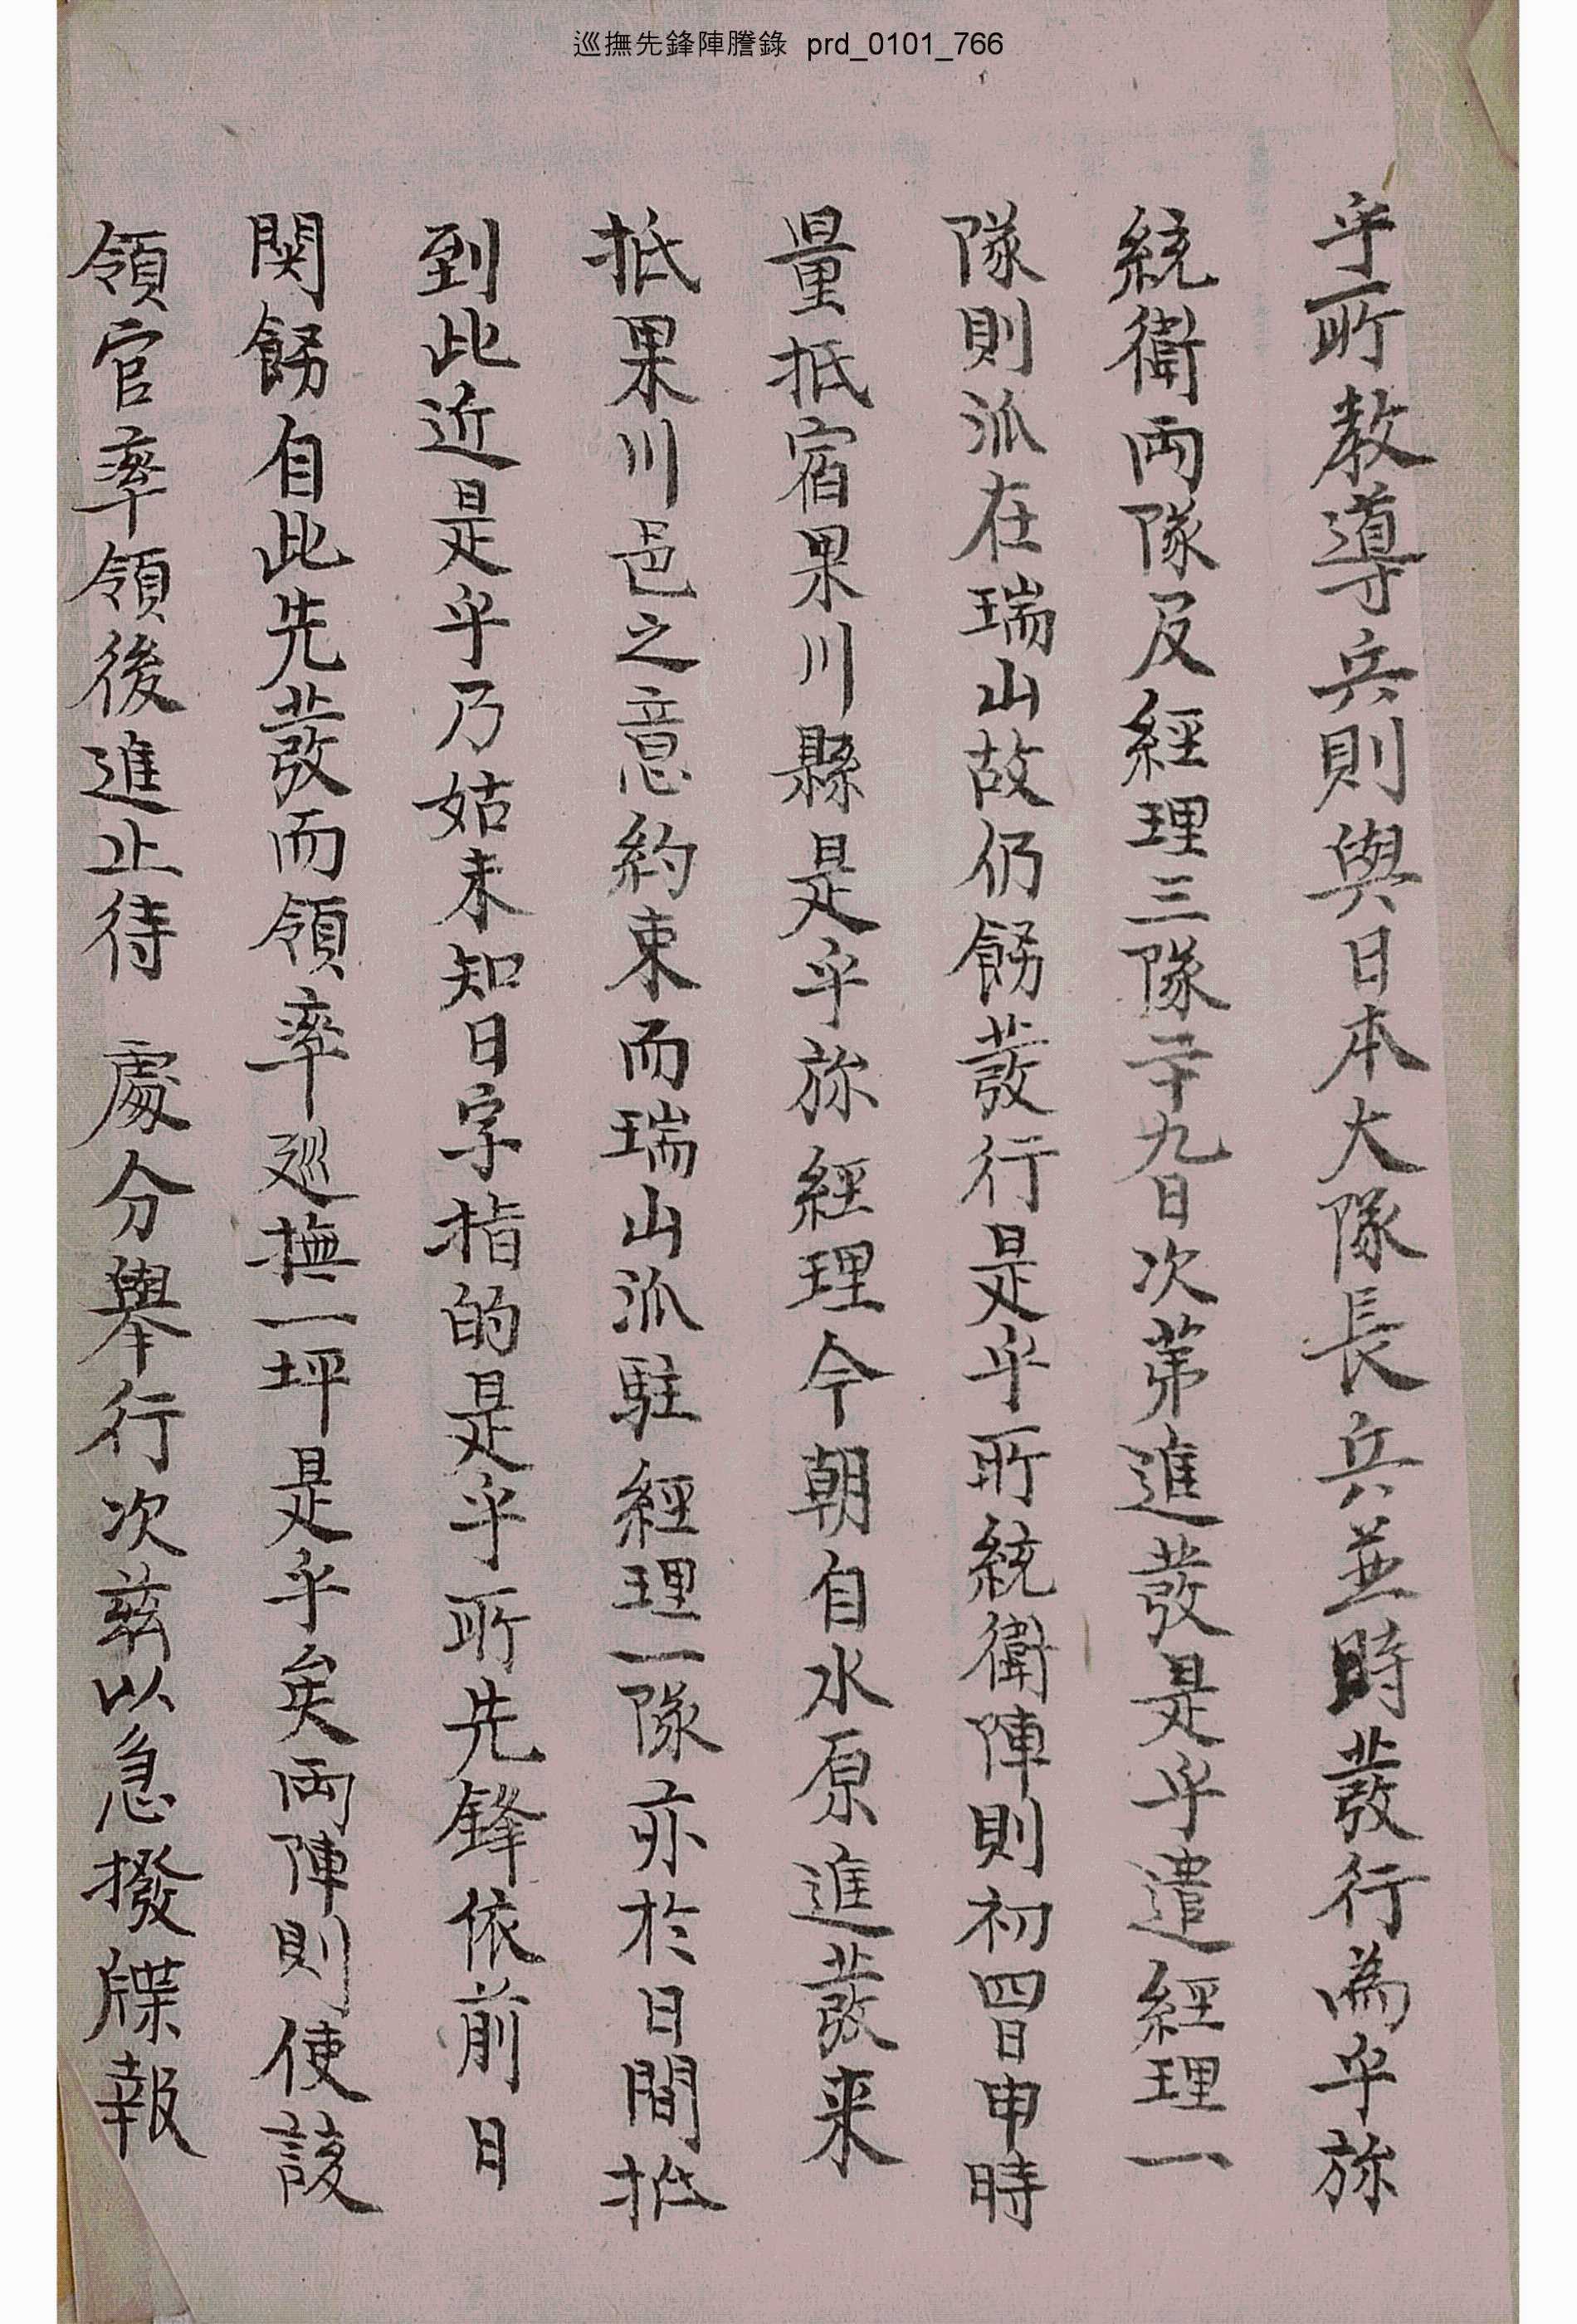 巡撫先鋒陣謄錄 prd_0101_766
乎所教導兵則與日本大隊長兵並時發行爲乎旀
統衛兩隊及經理三隊二十九日次第進發是乎遣經理一
隊則派在瑞山故仍飭發行是乎所統衛陣則初四日申時
量抵宿果川縣是乎旀經理今朝自水原進發來
抵果川邑之意約束而瑞山派駐經理一隊亦於日間抵
到此近是乎乃姑未知日字指的是乎所先鋒依前日
関飭自此先發而領率廵撫一坪是乎矣兩陣則使該
領官率領後進止待 處分擧行次玆以急撥牒報